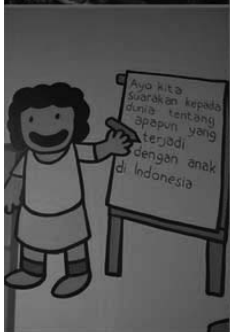 Ayo kita
suarakan kepada
dunia tentang
apapun yang
terjadi
dengan anak
di Indonesia